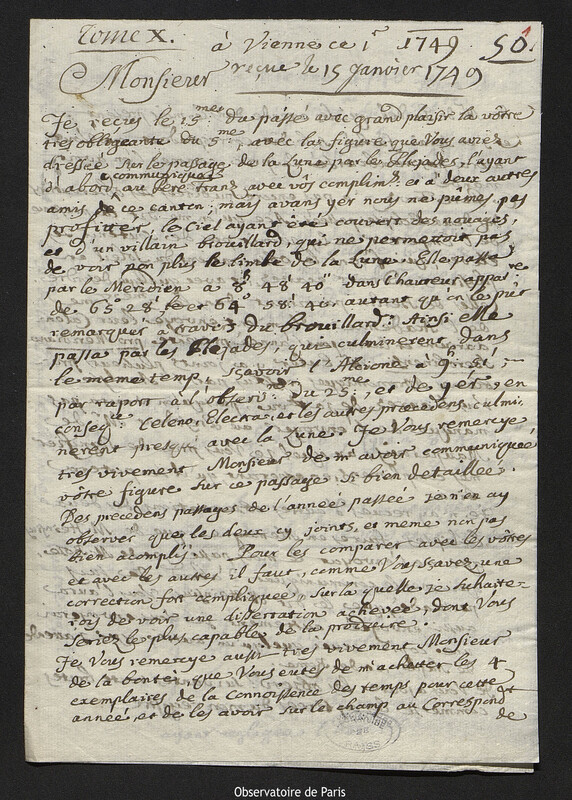 Tome X. à Vienne ce 1r 1749. 50.
Monsieur reçue le 15 Janvier 1749
Je reçus le 15me du passé avec grand plaisir la vôtre
tres obligeante du 5me, avec la figure que Vous aviez
dressée sur le passage de la Lune par les Plejades, l'ayant
d'abord communiquée au Pere Franz avec vôs complimts. et a deux autres
amis de ce canton; mais avans yer nous ne pûmes pas
profitter, le Ciel ayant eté couvert des nouages,
et d'un villain brouillard, qui ne permettoit pas
de voir non plus le limbe de la Lune. Elle passa
par le Meridien a 8h 48' 40'' dans l'hauteur appare
de 65° 28' et 64° 58' 40'' autant qu'on le pût
remarquer a travers du brouillard. Ainsi elle
passa par les Plejades, qui culminerent dans
le meme temp, sçavoir l'Alcione à 9h
par raport à l'observ. du 25me, et de yer, en
conseqce Celeno, Electra, et les autres precedens culmi-
nerent presqu' avec la Lune. Je Vous remercye
tres vivement Monsieur de m'avoir communiqueé
vôtre figure sur ce passage si bien detailleé.
Des precedens passages de l'anneé passeé je n'en ay
observer que les deux cy joints, et meme non pas
bien acomplis. Pour les comparer avec les vôtres
et avec les autres il faut, comme Vous sçavez, une
correction fort compliqueé, sur la quelle je suhaite-
rois de voir une dissertation acheveé, dont Vous
seriez le plus capable de la produire.
Je Vous remercye aussi tres vivement Monsieur
de la bonteé, que Vous eutes de m'achetter les 4
exemplaires de la Connoissence des temps pour cette
anneé, et de les avoir sur le champ au Correspondt
de
Observatoire de Paris